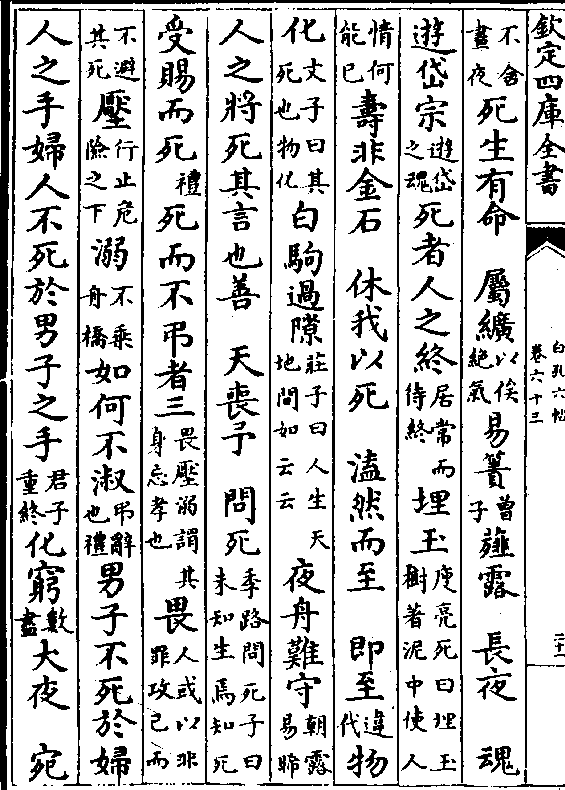 欽定四庫全書
白孔六帖
卷六十三
二十一
不舍晝夜死生有命 屬纊以俟絕氣易簀曾子薤露 長夜 魂
遊岱宗遊岱之魂死者人之終居常而待終埋玉庾亮死曰埋玉樹著泥中使人
情何能已壽非金石 休我以死 溘然而至 即至違代物
化文子曰其死也物化白駒過隙莊子曰人生天地間如云云夜舟難守朝露易晞
人之將死其言也善 天喪予 問死季路問死子曰未知生焉知死
受賜而死禮死而不弔者三畏壓溺謂其身忘孝也畏人或以非罪攻己而
不避其死壓行止危險之下溺不乘舟橋如何不淑弔辭也禮男子不死於婦
人之手婦人不死於男子之手君子重終化窮數盡大夜 宛